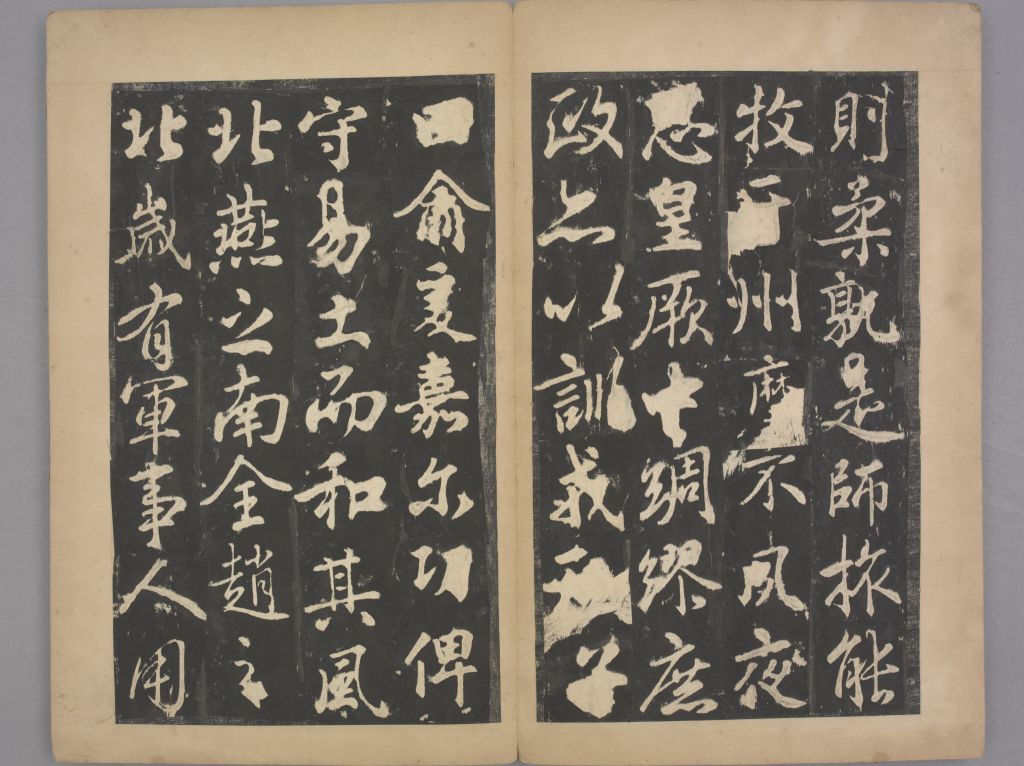 則柔孰是師旅能
牧于州靡不夙夜
皇厥中綢繆庶
政亦以訓我天子
曰俞爰嘉尔功俾
守易土而和其風
北燕之南全趙之
北歲有軍事人用